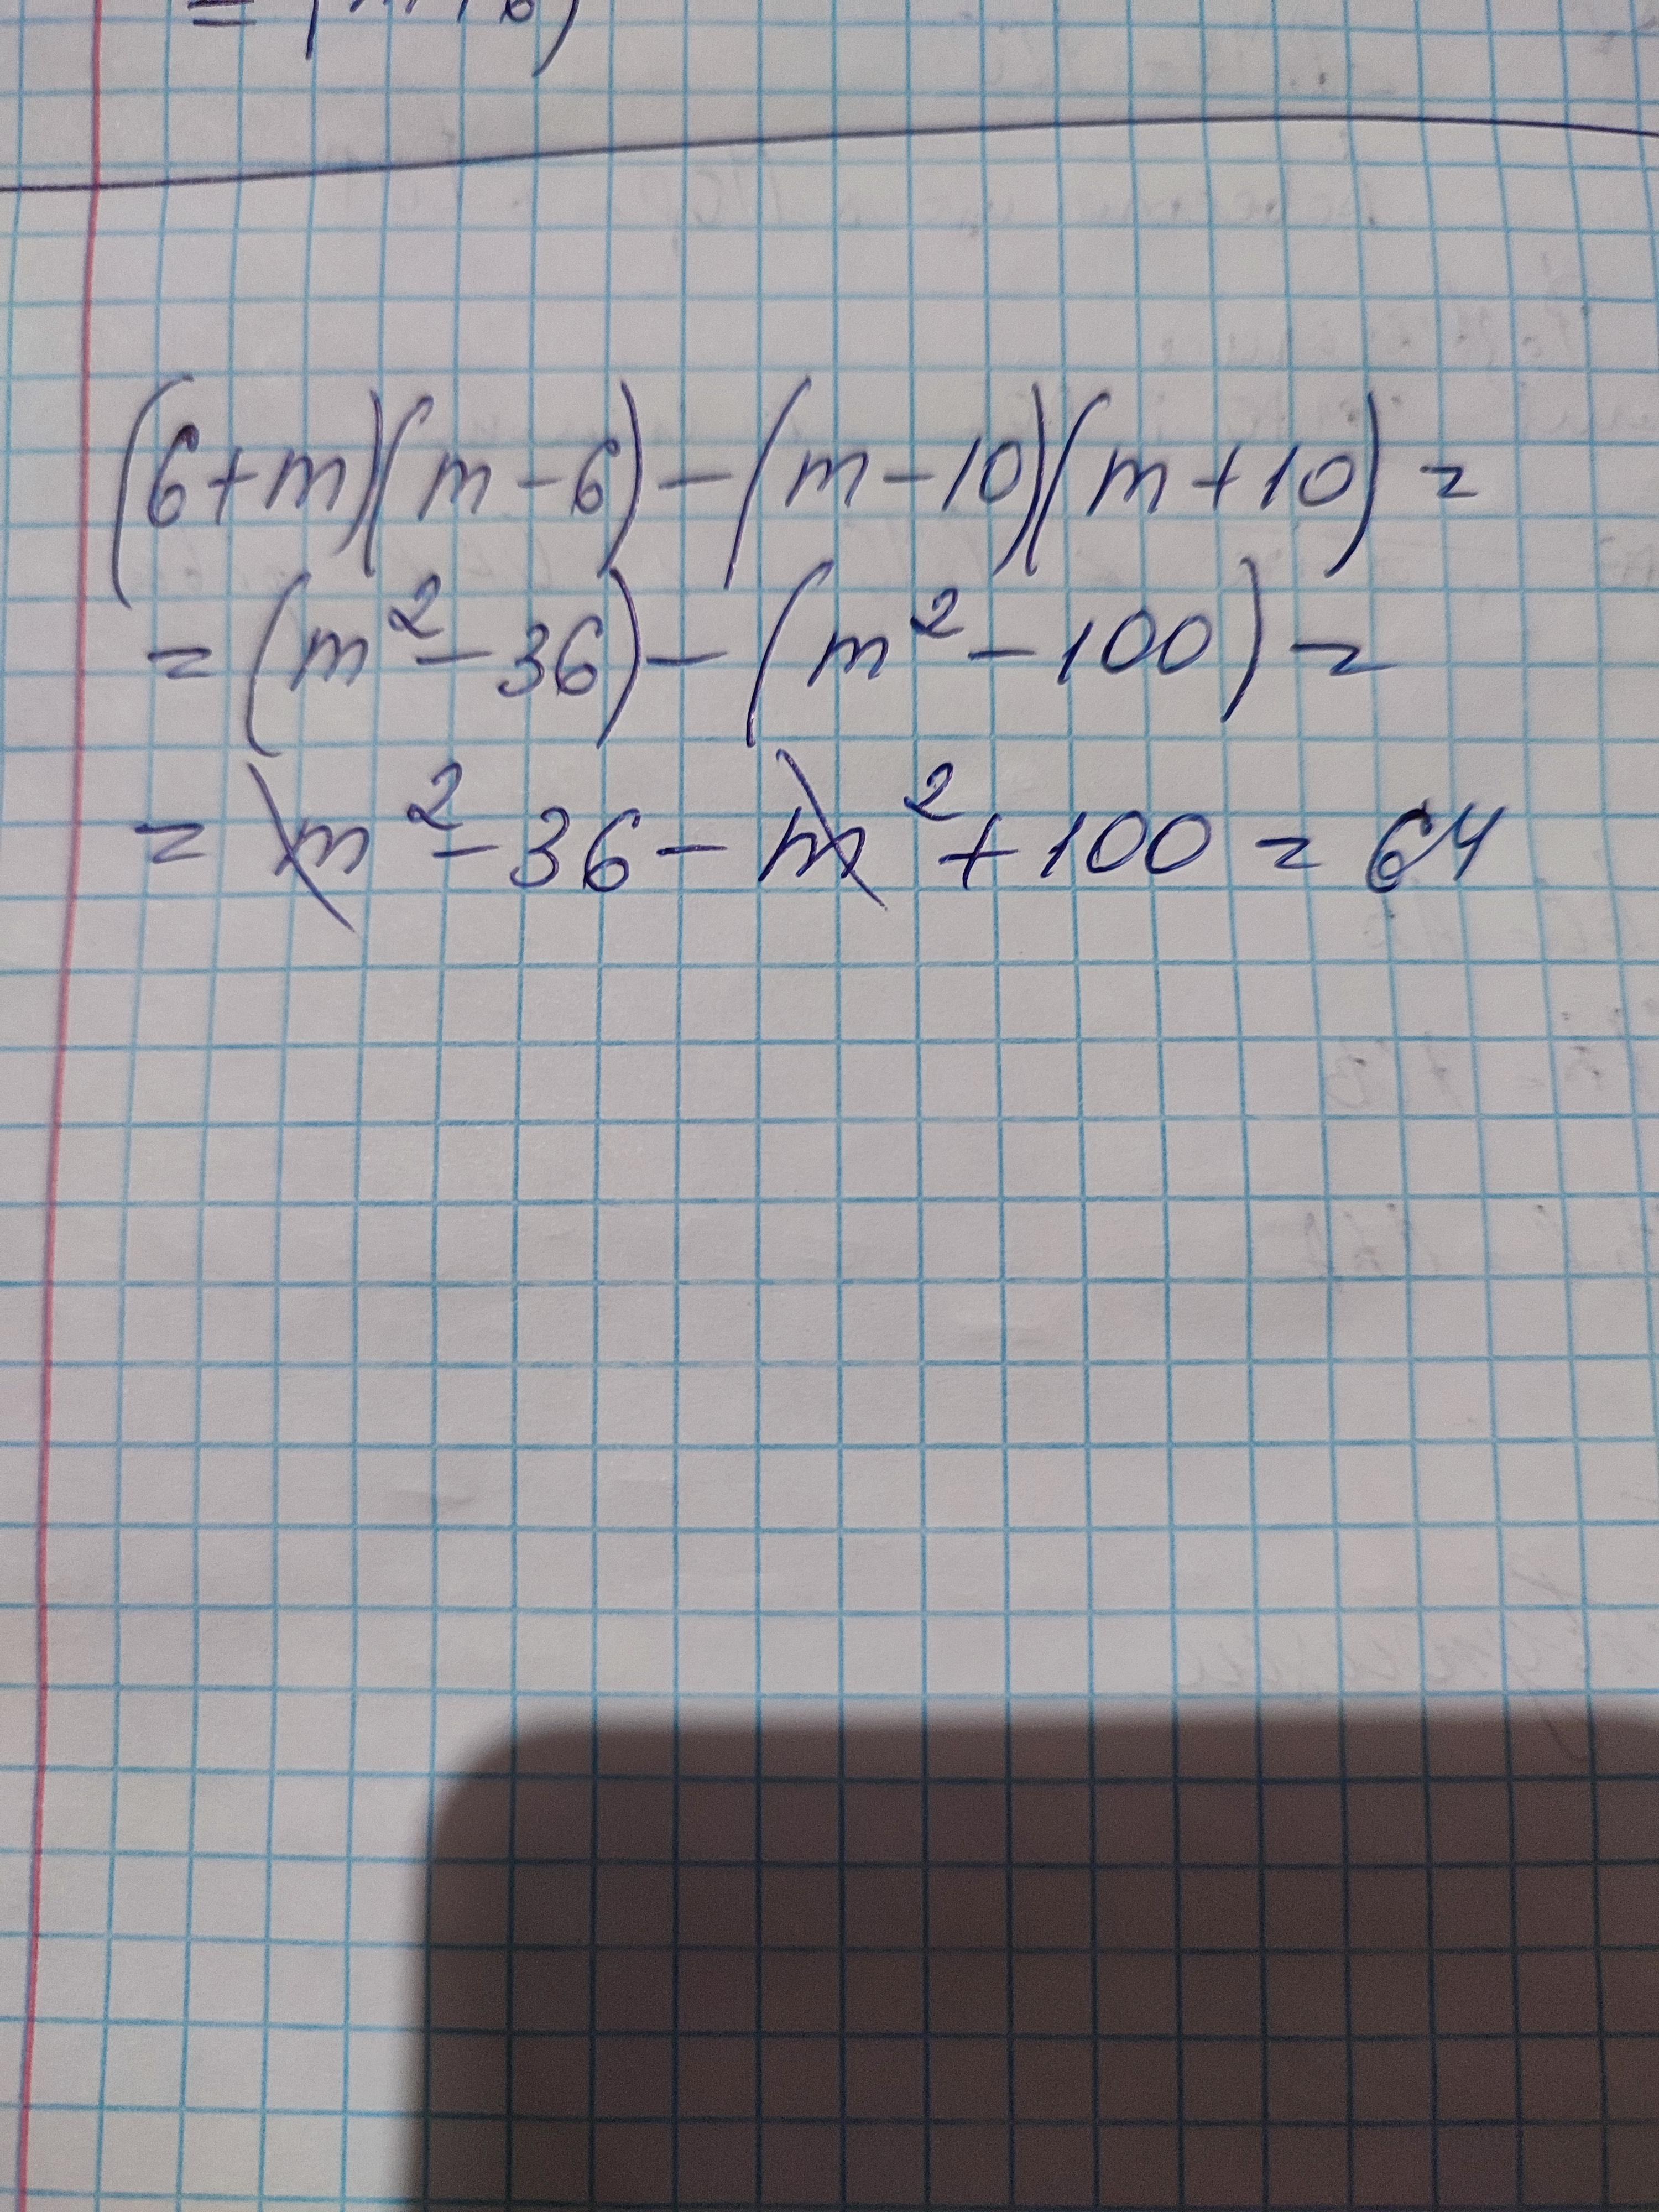 (6+m)(m-6)-(m-10)(m+10)=
=(m²-36)-(m²-100)=
=m²-36-m²+100=64